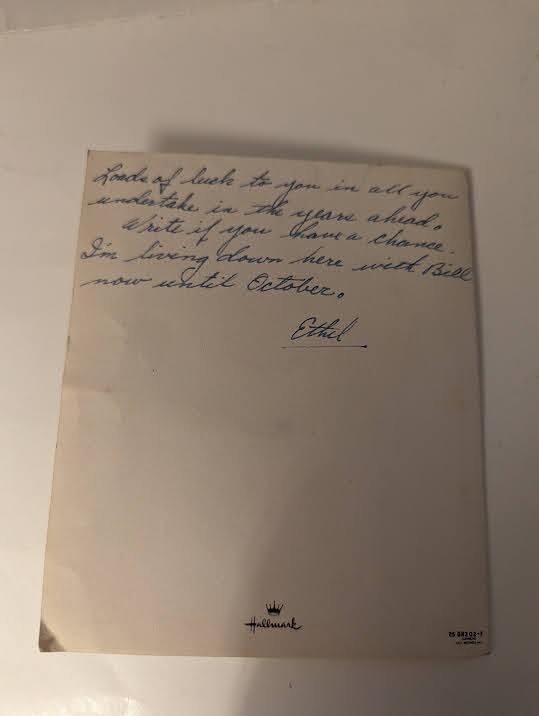 Loads of luck to you in all you
undertake in the years ahead.
Write if you have a chance.
I'm living down here with Bill
now until October.
Ethel
Hallmark